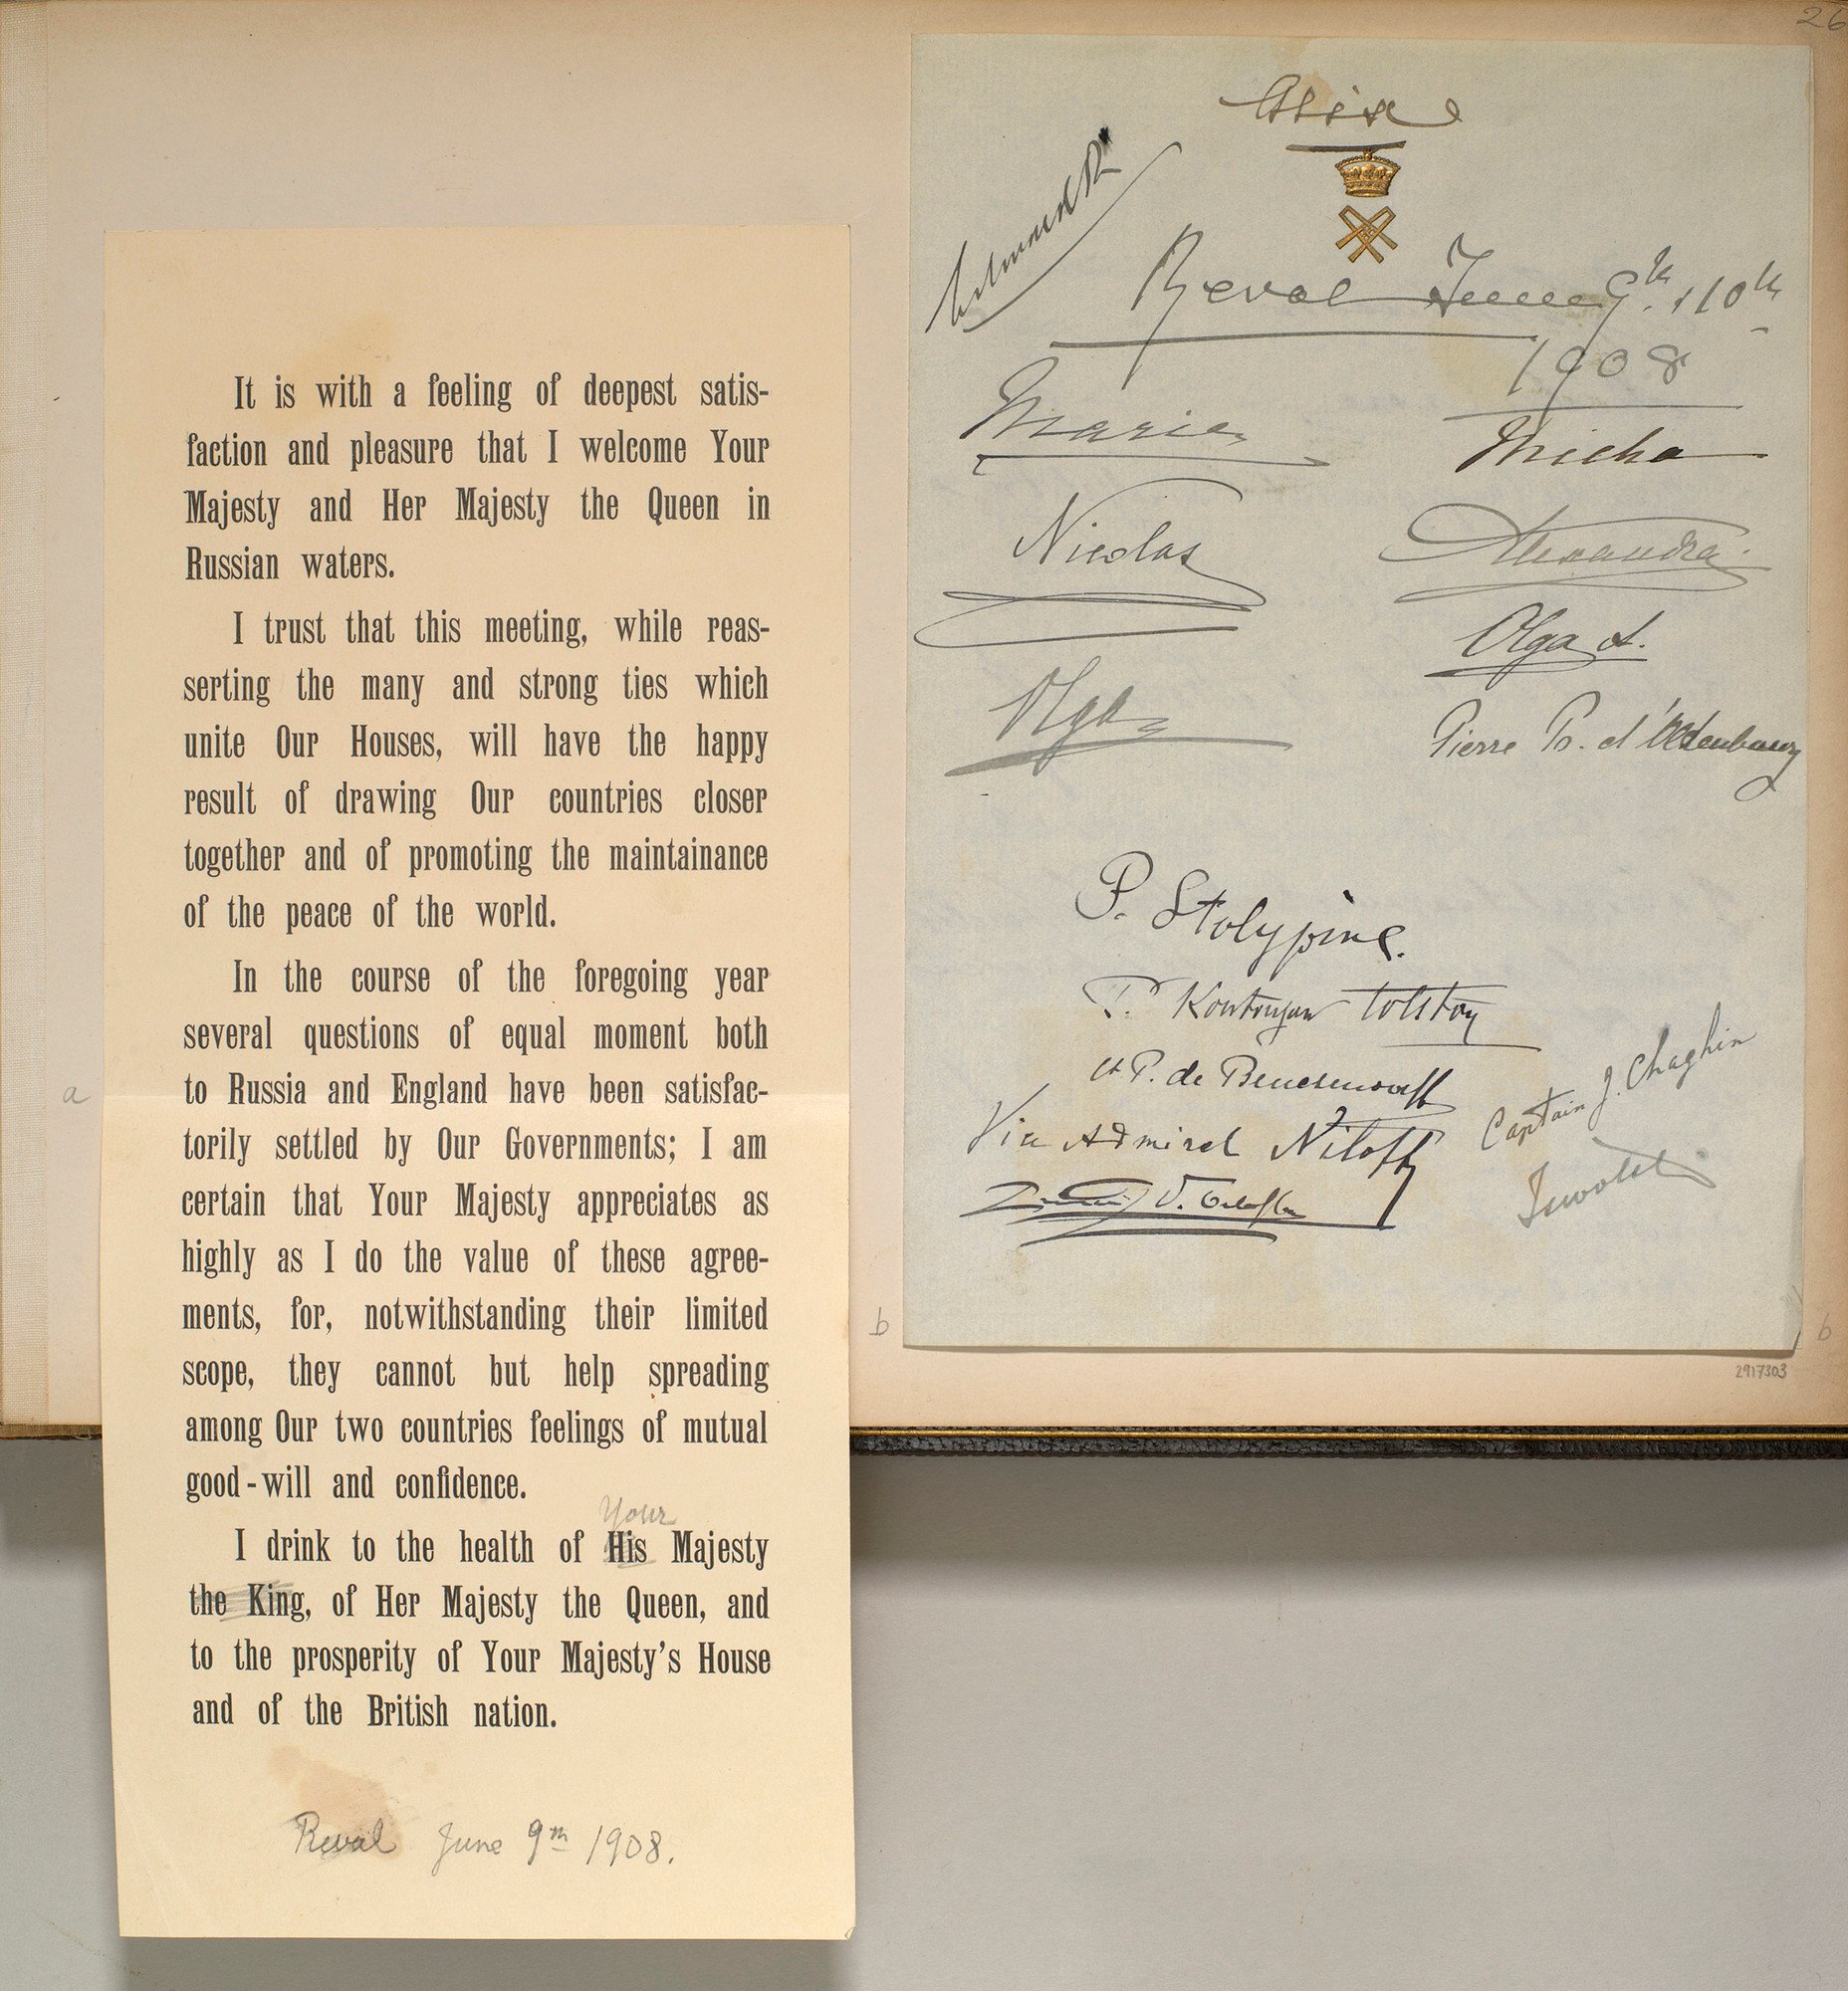 It is with a feeling of deepest satis-
faction and pleasure that I welcome Your
Majesty and Her Majesty the Queen in
Russian waters.
I trust that this meeting, while reas-
serting the many and strong ties which
unite Our Houses, will have the happy
result of drawing Our countries closer
together and of promoting the maintainance
of the peace of the world.
In the course of the foregoing year
several questions of equal moment both
to Russia and England have been satisfac-
torily settled by Our Governments; I am
certain that Your Majesty appreciates as
highly as I do the value of these agree-
ments, for, notwithstanding their limited
scope, they cannot but help spreading
among Our two countries feelings of mutual
good-will and confidence.
Your
I drink to the health of His Majesty
the King, of Her Majesty the Queen, and
to the prosperity of Your Majesty's House
and of the British nation.
Reval June 9th 1908.
a
26
Alix
Edward R
Reval June 9th & 10th
1908
Marie
Micha
Nicolas
Alexandra
Olga A.
Olga
Pierre Pr. d'Oldenbourg
P. Stolypine.
P. Tolstoy
Ct P. de Benckendorff
Captain J. Chaghin
Vice Admiral Niloff
Iswolsky
V. Orloff
b
b
2917303